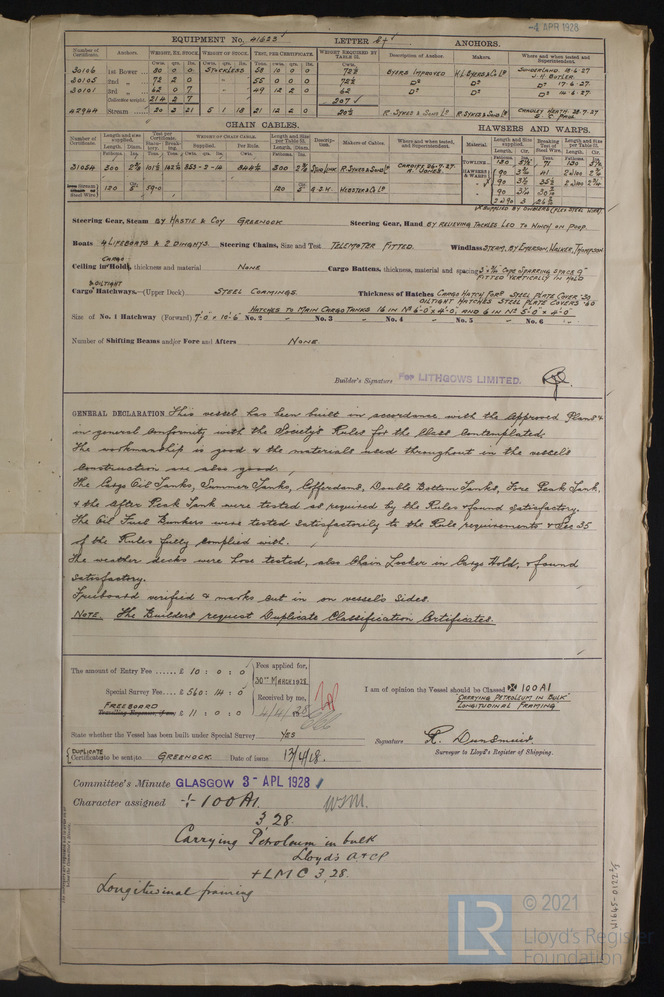 -4 APR 1928
EQUIPMENT No. 41623 LETTER ANCHORS.
Number of Certificate. Anchors. WEIGHT, EX. STOCK. WEIGHT OF STOCK. TEST, PER CERTIFICATE. WEIGHT REQUIRED BY TABLE 31. Description of Anchor. Makers. Where and when tested and Superintendent.
Cwts. qrs. lbs. Cwts. qrs. lbs. Tons. cwts. qrs. lbs. Cwts.
30106 1st Bower 80 0 0 STOCKLESS 58 10 0 0 72½ BYERS IMPROVED W.L. BYERS & Co Ld SUNDERLAND
30105 2nd " 72 2 0 " 55 0 0 0 72½ Do Do Do 17.6.27
30101 3rd " 62 0 7 " 49 12 2 0 62 Do Do Do 14.6.27
Collective weight 214 2 7 207 ✓
42944 Stream 20 3 21 5 1 18 21 12 2 0 20½ R. SYKES & SONS Ld CRADLEY HEATH 28.7.27
CHAIN CABLES. HAWSERS AND WARPS.
Number of Certificate. Length and size supplied. Test per Certificate. WEIGHT OF CHAIN CABLE. Length and Size per Table 31. Description. Makers of Cables. Where and when tested, and Superintendent. Material. Length and Size supplied. Breaking Test of Steel Wire. Length and Size per Table 31.
31054 300 355-2-14 846½ 300 STUD LINK R. SYKES & SONS Ld CRADLEY 26-7-27 TOWLINE 130 71 130
A. JONES. HAWSERS & WARPS 90 41
90
Iron Stream or Steel Wire 120 59.0 120 G.S.W. WEBSTER & Co Ld 90
2 @ 90 3
Steering Gear, Steam BY HASTIE & COY GREENOCK Steering Gear, Hand BY RELIEVING TACKLES LED TO WINCH ON POOP.
Boats 4 LIFEBOATS & 2 DINGHYS. Steering Chains, Size and Test TELEMOTOR FITTED. Windlass STEAM, BY EMERSON, WALKER, THOMPSON
CARGO
Ceiling in Hold, thickness and material NONE Cargo Battens, thickness, material and spacing SPARRING SPACE 9"
FITTED VERTICALLY IN HOLD
& OILTIGHT
Cargo Hatchways.—(Upper Deck) STEEL COAMINGS Thickness of Hatches CARGO HATCH FORD STEEL PLATE COVER
OILTIGHT HATCHES STEEL PLATE COVERS
Size of No. 1 Hatchway (Forward) 7'-0" x 10'-6" No. 2 HATCHES TO MAIN CARGO TANKS 16 IN No 6'-0" x 4'-0", AND 6 IN No 5'-0" x 4'-0" No. 3 No. 4 No. 5 No. 6
Number of Shifting Beams and/or Fore and Afters NONE
Builder's Signature FOR LITHGOWS LIMITED.
GENERAL DECLARATION This vessel has been built in accordance with the approved Plans &
in general conformity with the Society's Rules for the Class contemplated.
The workmanship is good & the materials used throughout in the vessel's
construction are also good.
The Cargo Oil Tanks, Summer Tanks, Cofferdams, Double Bottom Tanks, Fore Peak Tank,
& the After Peak Tank were tested as required by the Rules & found satisfactory.
The Oil Fuel Bunkers were tested satisfactorily to the Rule requirements & Sec 35
of the Rules fully complied with.
The weather decks were hose tested, also Chain Locker in Cargo Hold, & found
satisfactory.
Freeboard verified & marks cut in on vessel's sides.
NOTE. The Builders request Duplicate Classification Certificates.
The amount of Entry Fee £ 10 : 0 : 0 Fees applied for,
30TH MARCH 1928
Special Survey Fee £ 560 : 14 : 0 Received by me, I am of opinion the Vessel should be Classed ✠ 100A1
FREEBOARD CARRYING PETROLEUM IN BULK
Travelling Expenses, if any £ 11 : 0 : 0 LONGITUDINAL FRAMING
State whether the Vessel has been built under Special Survey YES Signature R. Dunsmuir
DUPLICATE Surveyor to Lloyd's Register of Shipping.
Certificate to be sent to GREENOCK Date of issue 13/4/28.
Committee's Minute GLASGOW 3 - APL 1928
Character assigned + 100A1.
3.28.
Carrying Petroleum in bulk
Lloyd's A & CP
+ LMC 3.28.
Longitudinal framing
W1645-0122 2/5
LR
© 2021
Lloyd's Register
Foundation